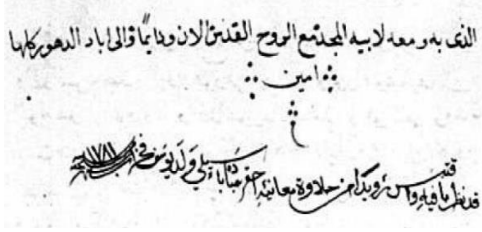 الذى به ومعه لابيه المجد مع الروح القدس الان ودايمًا والى اباد الدهور كلها
امين
قد نظر ما فيه واقتبس رويدا من حلاوة معانيه احقر عباد باسيلي ولد يوسف فخر ١٧٨١